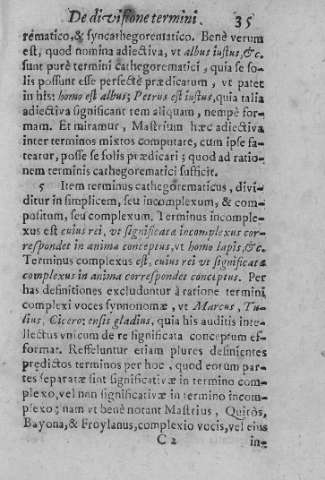 De divisione termini. 35
rématico, & syncathegorematico. Benè verum
est, quod nomina adiectiva, vt albus iustus, &c.
sunt purè termini cathegorematici, quia se so-
lis possunt esse perfectè prædicatum, vt patet
in his: homo est albus; Petrus est iustus, quia talia
adiectiva significant rem aliquam, nempè for-
mam. Et miramur, Mastrium hæc adiectiva
inter terminos mixtos computare, cum ipse fa-
teatur, posse se solis prædicari; quod ad ratio-
nem terminis cathegorematici sufficit.
5 Item terminus cathegorematicus, divi-
ditur in simplicem, seu incomplexum, & com-
positum, seu complexum. Terminus incomple-
xus est cuius rei, vt significatæ incomplexus cor-
respondet in anima conceptus, vt homo lapis, &c.
Terminus complexus est, cuius rei vt significatæ
complexus in anima correspondet conceptus. Per
has definitiones excluduntur à ratione termini
complexi voces synonomæ, vt Marcus, Tu-
lius, Cicero; ensis gladius, quia his auditis inte-
llectus vnicum de re significata conceptum ef-
format. Refelluntur etiam plures definientes
prædictos terminos per hoc, quod eorum par-
tes separatæ sint significativæ in termino com-
plexo, vel non significativæ in termino incom-
plexo; nam vt benè notant Mastrius, Quiròs,
Bayona, & Froylanus, complexio vocis, vel eius
C 2 in-